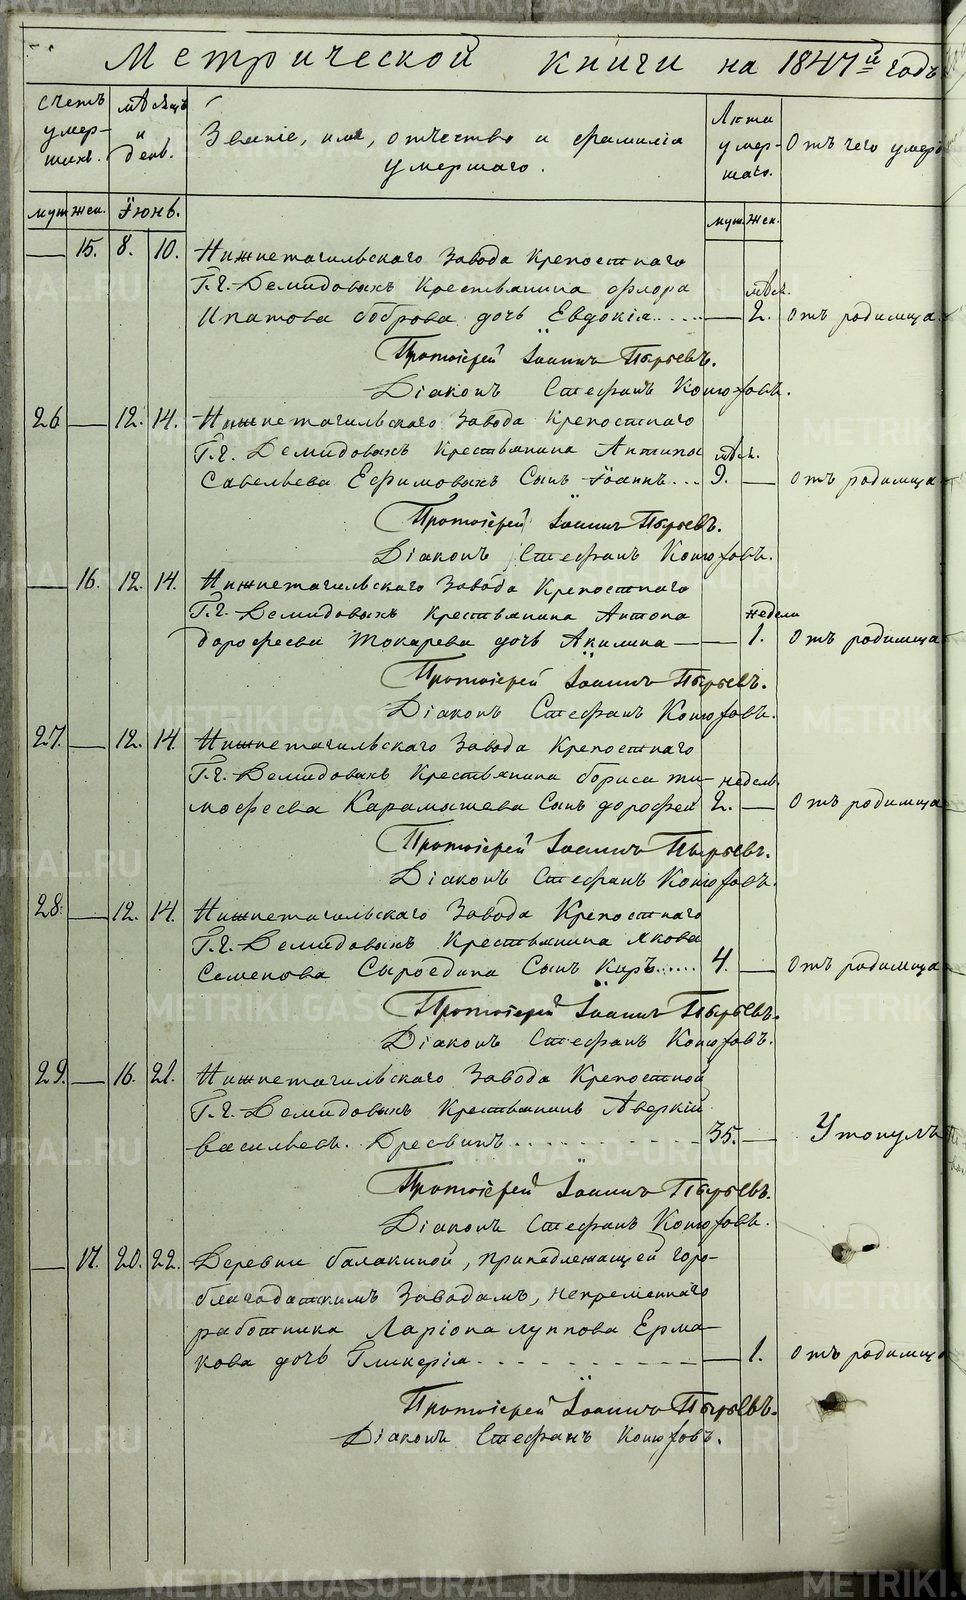 Метрической книги на 1847й годъ
Счетъ умершихъ.
Мѣсяцъ и день.
Званіе, имя, отчество и фамилія умершаго.
Лѣта умершаго.
Отъ чего умеръ
муж. жен. Іюнь. муж. жен.
— 15. 8. 10. Нижнетагильскаго Завода Крепостнаго
Г.г. Демидовыхъ Крестьянина Флора мѣся.
Ипатова Боброва дочь Евдокія..... — 2. отъ родимца
Протоіерей Іоаннъ Пырьевъ.
Діаконъ Стефанъ Конюховъ.
26 — 12. 14. Нижнетагильскаго Завода Крепостнаго
Г.г. Демидовыхъ Крестьянина Антипы мѣся.
Савельева Ефимовыхъ Сынъ Іоаннъ... 9. — отъ родимца
Протоіерей Іоаннъ Пырьевъ.
Діаконъ Стефанъ Конюховъ.
— 16. 12. 14. Нижнетагильскаго Завода Крепостнаго
Г.г. Демидовыхъ Крестьянина Антона недели
дорофеева Токарева дочь Акилина — — 1. отъ родимца
Протоіерей Іоаннъ Пырьевъ.
Діаконъ Стефанъ Конюховъ.
27. — 12. 14. Нижнетагильскаго Завода Крепостнаго
Г.г. Демидовыхъ Крестьянина бориса ти- недель.
мофеева Карамышева Сынъ дорофей 2. — отъ родимца
Протоіерей Іоаннъ Пырьевъ.
Діаконъ Стефанъ Конюховъ.
28. — 12. 14. Нижнетагильскаго Завода Крепостнаго
Г.г. Демидовыхъ Крестьянина якова
Семенова Сыроедина Сынъ Киръ...... 4. — отъ родимца
Протоіерей Іоаннъ Пырьевъ.
Діаконъ Стефанъ Конюховъ.
29. — 16. 21. Нижнетагильскаго Завода Крепостной
Г.г. Демидовыхъ Крестьянинъ Аверкій
васильевъ. Дресвинъ.......... 35. — Утонулъ
Протоіерей Іоаннъ Пырьевъ.
Діаконъ Стефанъ Конюховъ.
— 17. 20. 22. Деревни балакиной, принадлежащей горо-
благодатскимъ Заводамъ, непременнаго
работника Ларіона луппова Ерма-
кова дочь Гликерія.......... — 1. отъ родимца
Протоіерей Іоаннъ Пырьевъ.
Діаконъ Стефанъ Конюховъ.
METRIKI.GASO-URAL.RU